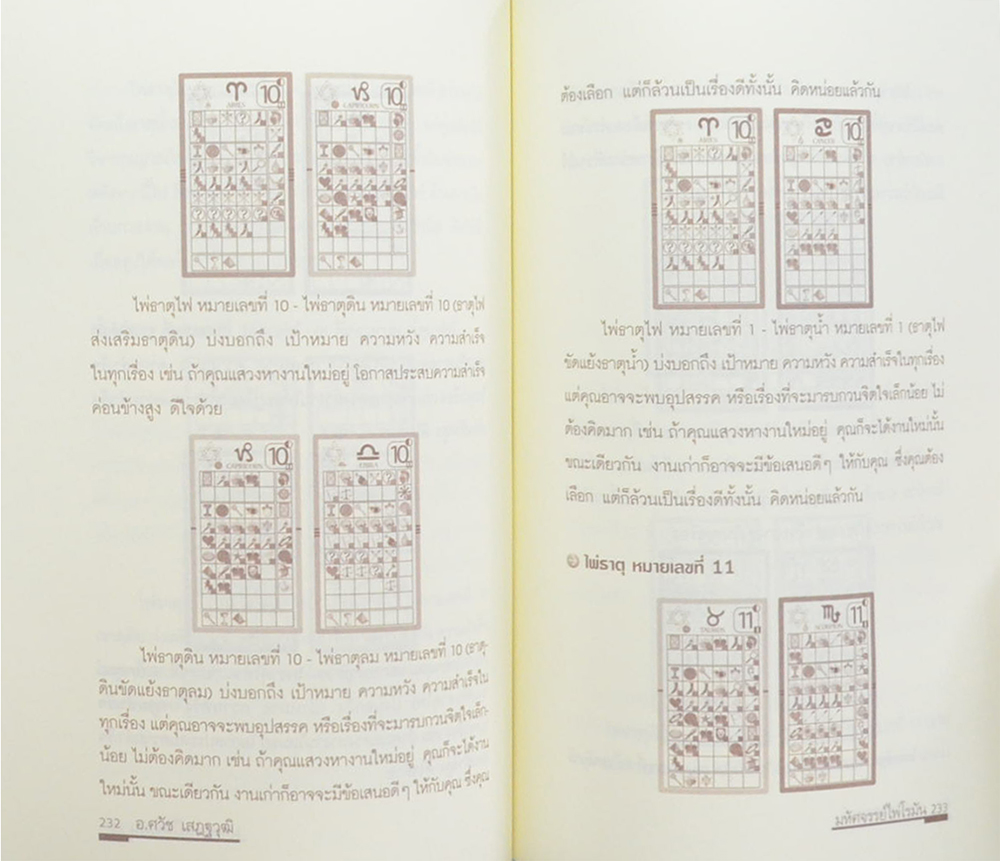 ARIES 10
CAPRICORN 10
ไพ่ธาตุไฟ หมายเลขที่ 10 - ไพ่ธาตุดิน หมายเลขที่ 10 (ธาตุไฟ
ส่งเสริมธาตุดิน) บ่งบอกถึง เป้าหมาย ความหวัง ความสำเร็จ
ในทุกเรื่อง เช่น ถ้าคุณแสวงหางานใหม่อยู่ โอกาสประสบความสำเร็จ
ค่อนข้างสูง ดีใจด้วย
CAPRICORN 10
LIBRA 10
ไพ่ธาตุดิน หมายเลขที่ 10 - ไพ่ธาตุลม หมายเลขที่ 10 (ธาตุ-
ดินขัดแย้งธาตุลม) บ่งบอกถึง เป้าหมาย ความหวัง ความสำเร็จใน
ทุกเรื่อง แต่คุณอาจจะพบอุปสรรค หรือเรื่องที่จะมารบกวนจิตใจเล็ก-
น้อย ไม่ต้องคิดมาก เช่น ถ้าคุณแสวงหางานใหม่อยู่ คุณก็จะได้งาน
ใหม่นั้น ขณะเดียวกัน งานเก่าก็อาจจะมีข้อเสนอดีๆ ให้กับคุณ ซึ่งคุณ
232 อ.ศวัช เสฏฐวุฒิ
ต้องเลือก แต่ก็ล้วนเป็นเรื่องดีทั้งนั้น คิดหน่อยแล้วกัน
ARIES 10
CANCER 10
ไพ่ธาตุไฟ หมายเลขที่ 1 - ไพ่ธาตุน้ำ หมายเลขที่ 1 (ธาตุไฟ
ขัดแย้งธาตุน้ำ) บ่งบอกถึง เป้าหมาย ความหวัง ความสำเร็จในทุกเรื่อง
แต่คุณอาจจะพบอุปสรรค หรือเรื่องที่จะมารบกวนจิตใจเล็กน้อย ไม่
ต้องคิดมาก เช่น ถ้าคุณแสวงหางานใหม่อยู่ คุณก็จะได้งานใหม่นั้น
ขณะเดียวกัน งานเก่าก็อาจจะมีข้อเสนอดีๆ ให้กับคุณ ซึ่งคุณต้อง
เลือก แต่ก็ล้วนเป็นเรื่องดีทั้งนั้น คิดหน่อยแล้วกัน
ไพ่ธาตุ หมายเลขที่ 11
TAURUS 11
SCORPIO 11
มหัศจรรย์ไพ่โรมัน 233